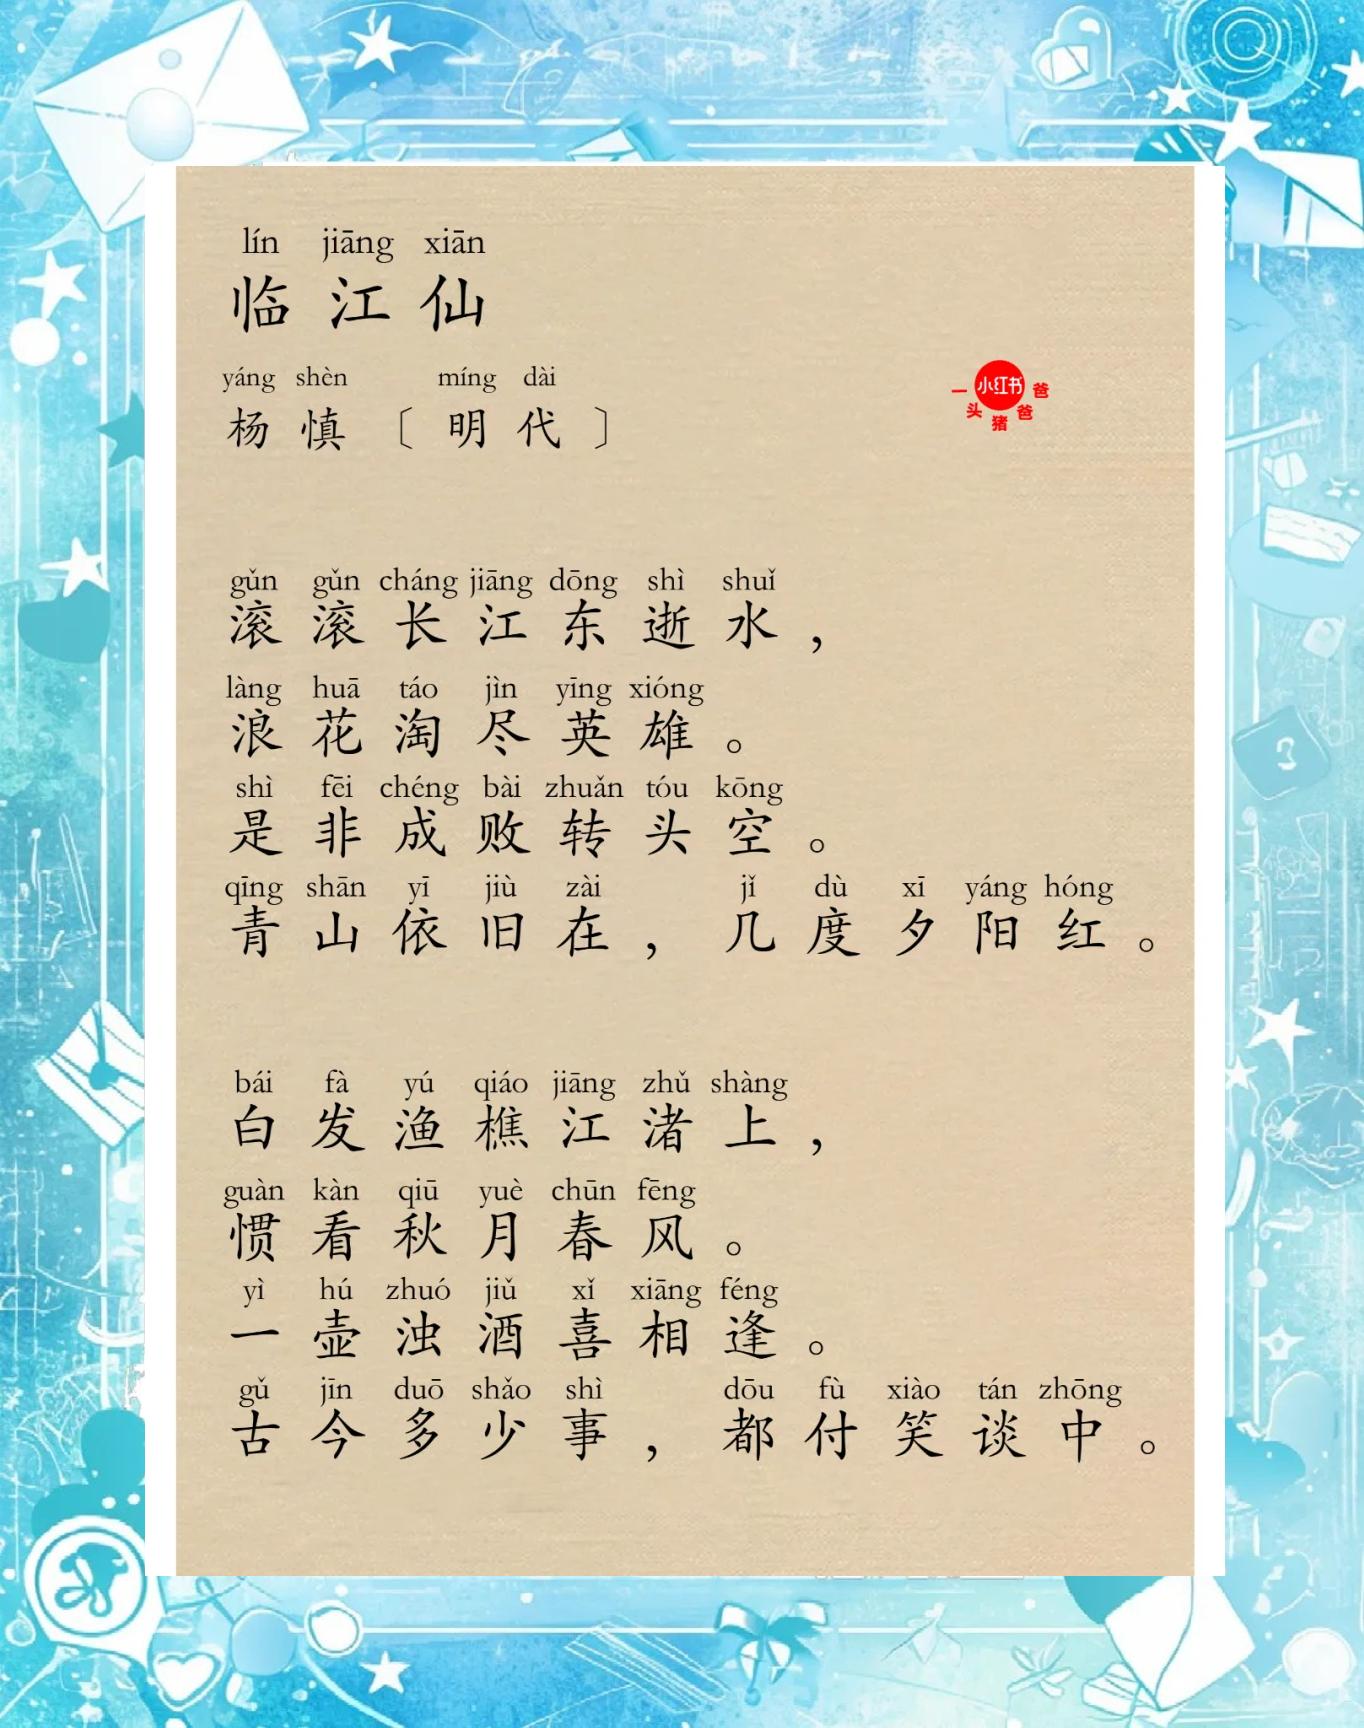 lín jiāng xiān
临江仙
yáng shèn míng dài
杨慎〔明代〕
小红书
一头猪爸爸
gǔn gǔn cháng jiāng dōng shì shuǐ
滚滚长江东逝水，
làng huā táo jìn yīng xióng
浪花淘尽英雄。
shì fēi chéng bài zhuǎn tóu kōng
是非成败转头空。
qīng shān yī jiù zài jǐ dù xī yáng hóng
青山依旧在，几度夕阳红。
bái fà yú qiáo jiāng zhǔ shàng
白发渔樵江渚上，
guàn kàn qiū yuè chūn fēng
惯看秋月春风。
yì hú zhuó jiǔ xǐ xiāng féng
一壶浊酒喜相逢。
gǔ jīn duō shǎo shì dōu fù xiào tán zhōng
古今多少事，都付笑谈中。